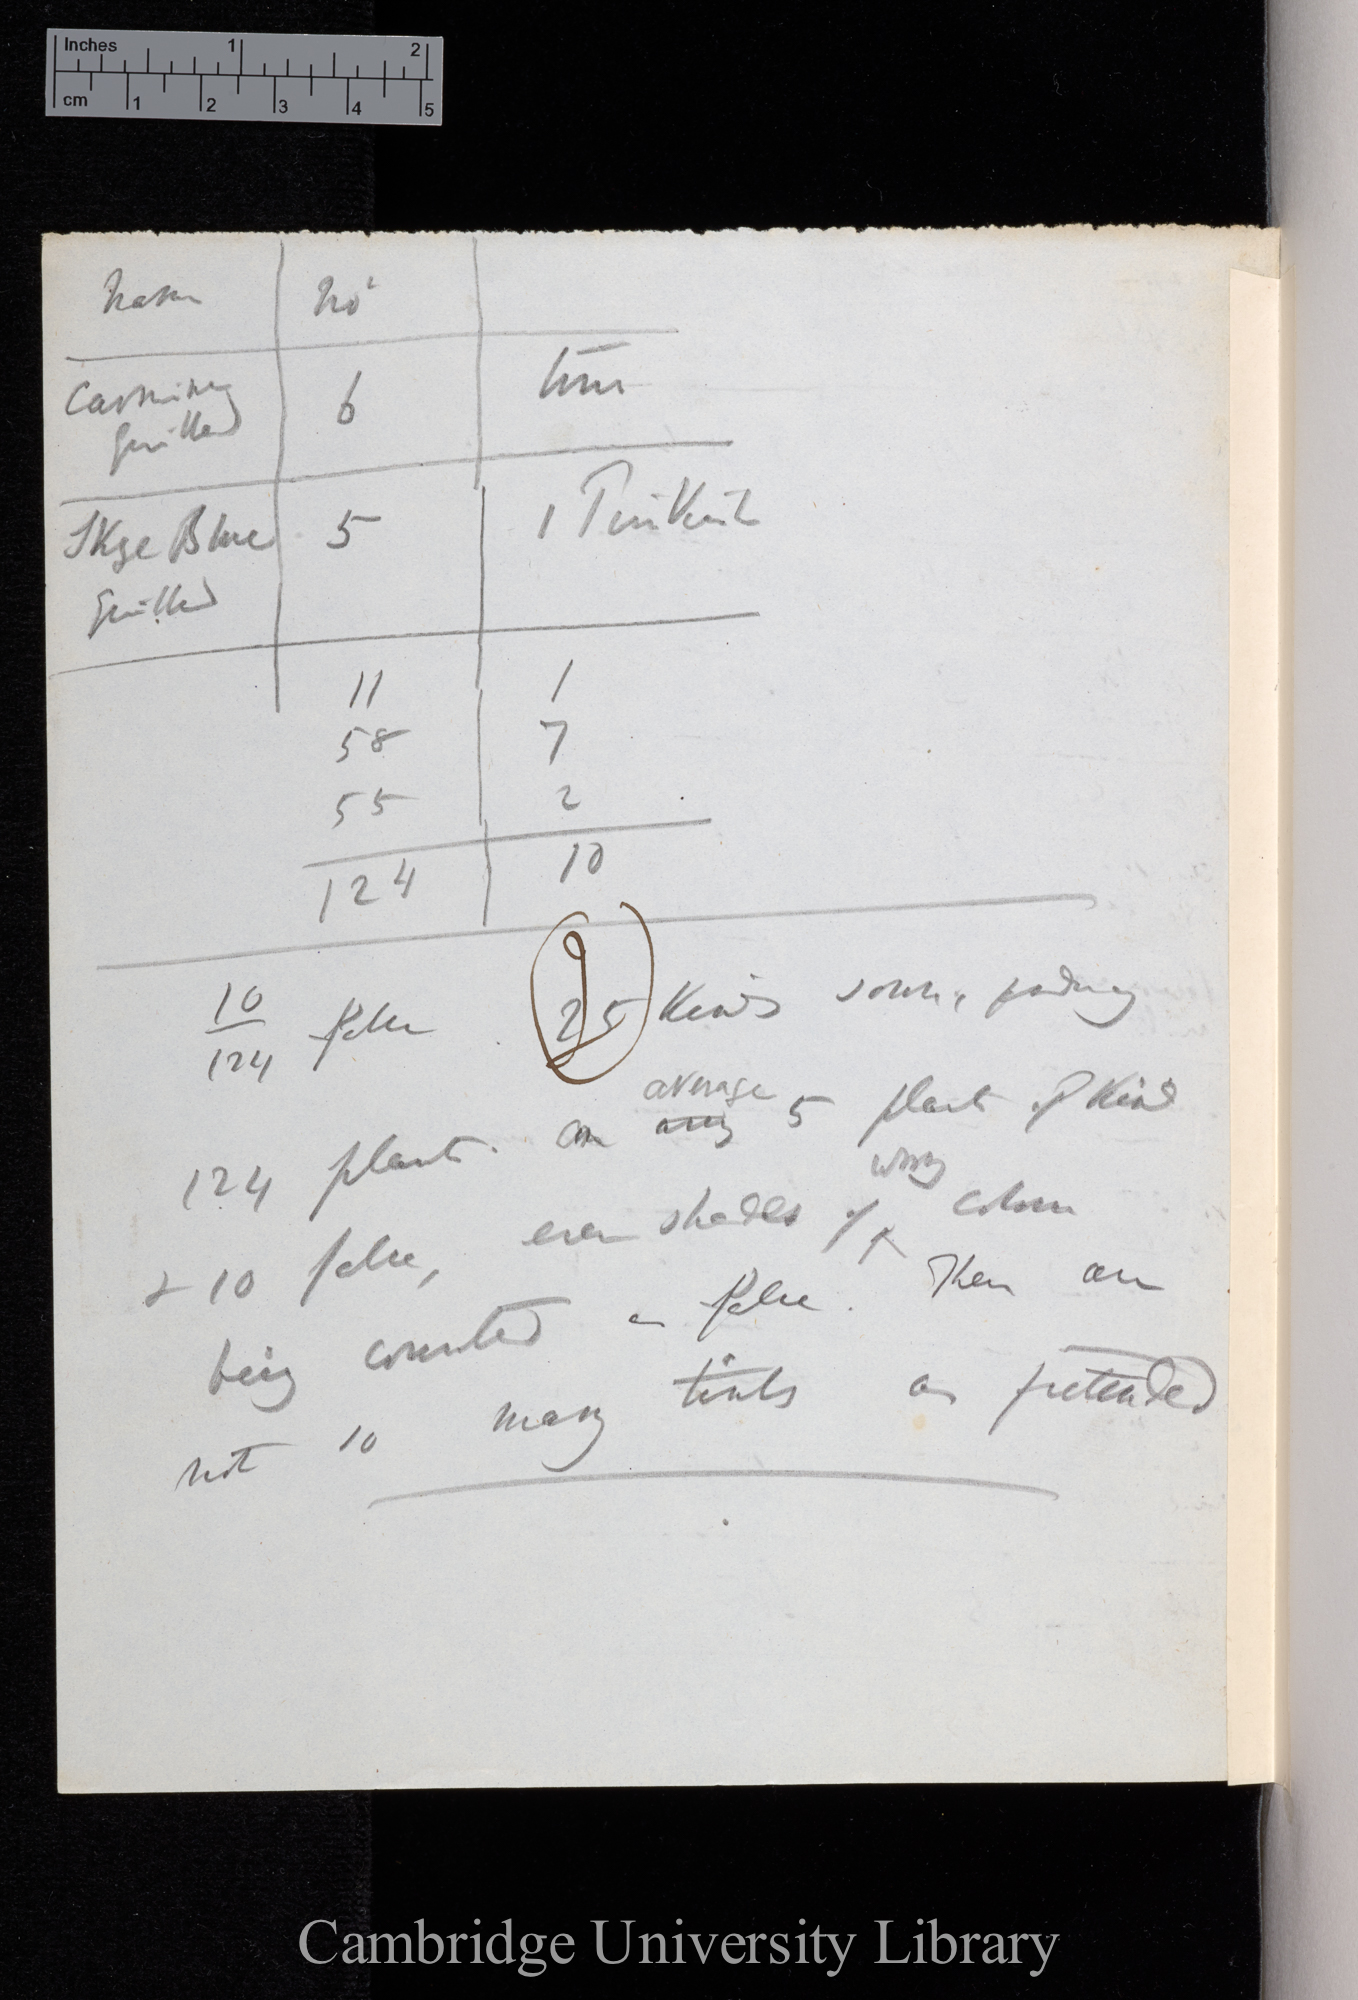 Inches 1 2
cm 1 2 3 4 5
Name No
Carmine 6 true
Quilled
Skye Blue 5 1 Pinkish
Quilled
11 1
58 7
55 2
124 10
10/124 false 25 Kinds sown, producing
average
124 plants. on any 5 plants of Kind
wrong
& 10 false, even shades of ^ colour
being counted as false. There are
not so many tints as pretended
Cambridge University Library